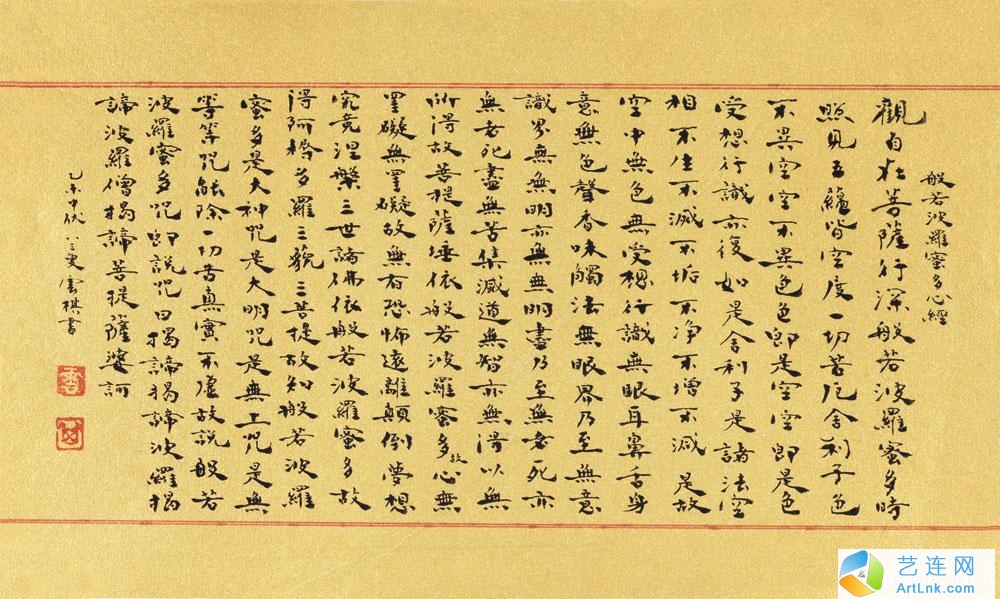 般若波羅蜜多心經
觀自在菩薩行深般若波羅蜜多時
照見五蘊皆空度一切苦厄舍利子色
不異空空不異色色即是空空即是色
受想行識亦復如是舍利子是諸法空
相不生不滅不垢不净不增不減是故
空中無色無受想行識無眼耳鼻舌身
意無色聲香味觸法無眼界乃至無意
識界無無明亦無無明盡乃至無老死亦
無老死盡無苦集滅道無智亦無得以無
所得故菩提薩埵依般若波羅蜜多故心無
罣礙無罣礙故無有恐怖遠離顛倒夢想
究竟涅槃三世諸佛依般若波羅蜜多故
得阿耨多羅三藐三菩提故知般若波羅
蜜多是大神咒是大明咒是無上咒是無
等等咒能除一切苦真實不虛故說般若
波羅蜜多咒即說咒曰揭諦揭諦波羅揭
諦波羅僧揭諦菩提薩婆訶
乙未中伏雲棋書
艺连网
ArtLnk.com